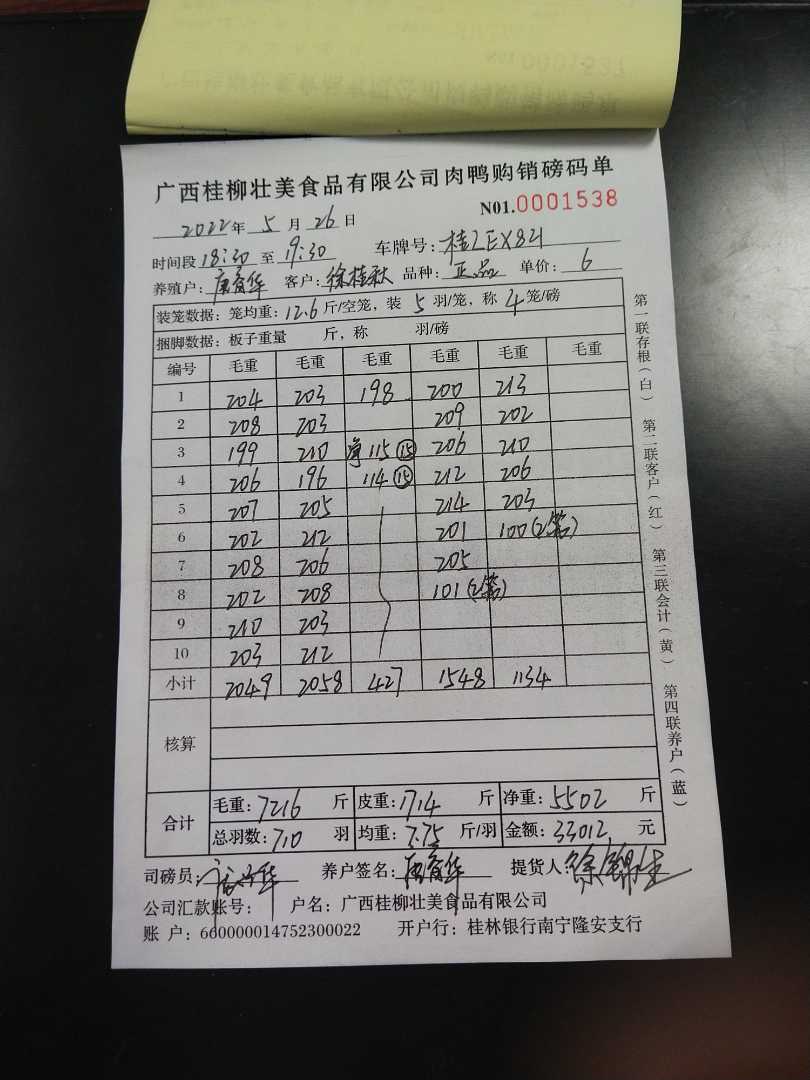 广西桂柳壮美食品有限公司肉鸭购销磅码单
N01.0001538
2022年 5 月 26 日
时间段 18:30 至 19:30 车牌号: 桂LEX821
养殖户: 唐育华 客户: 徐桂秋 品种: 正品 单价: 6
装笼数据: 笼均重: 12.6 斤/空笼, 装 5 羽/笼, 称 4 笼/磅
捆脚数据: 板子重量 斤, 称 羽/磅
编号 毛重 毛重 毛重 毛重 毛重 毛重
1 204 203 198 200 213
2 208 203 209 202
3 199 210 净115⑮ 206 210
4 206 196 114⑮ 212 206
5 207 205 214 203
6 202 212 201 100(2笼)
7 208 206 205
8 202 208 101(2笼)
9 210 203
10 203 212
小计 2049 2058 427 1548 1134
核算
合计 毛重: 7216 斤 皮重: 1714 斤 净重: 5502 斤
总羽数: 710 羽 均重: 7.75 斤/羽 金额: 33012 元
司磅员: 养户签名: 唐育华 提货人 徐锦生
公司汇款账号: 户名: 广西桂柳壮美食品有限公司
账 户: 660000014752300022 开户行: 桂林银行南宁隆安支行
第一联存根(白) 第二联客户(红) 第三联会计(黄) 第四联养户(蓝)